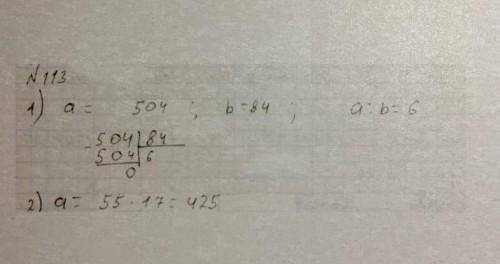 N.113
1) a = 504 ; b = 84 ; a : b = 6
- 504 | 84
504 | 6
0
2) a = 55 · 17 = 425